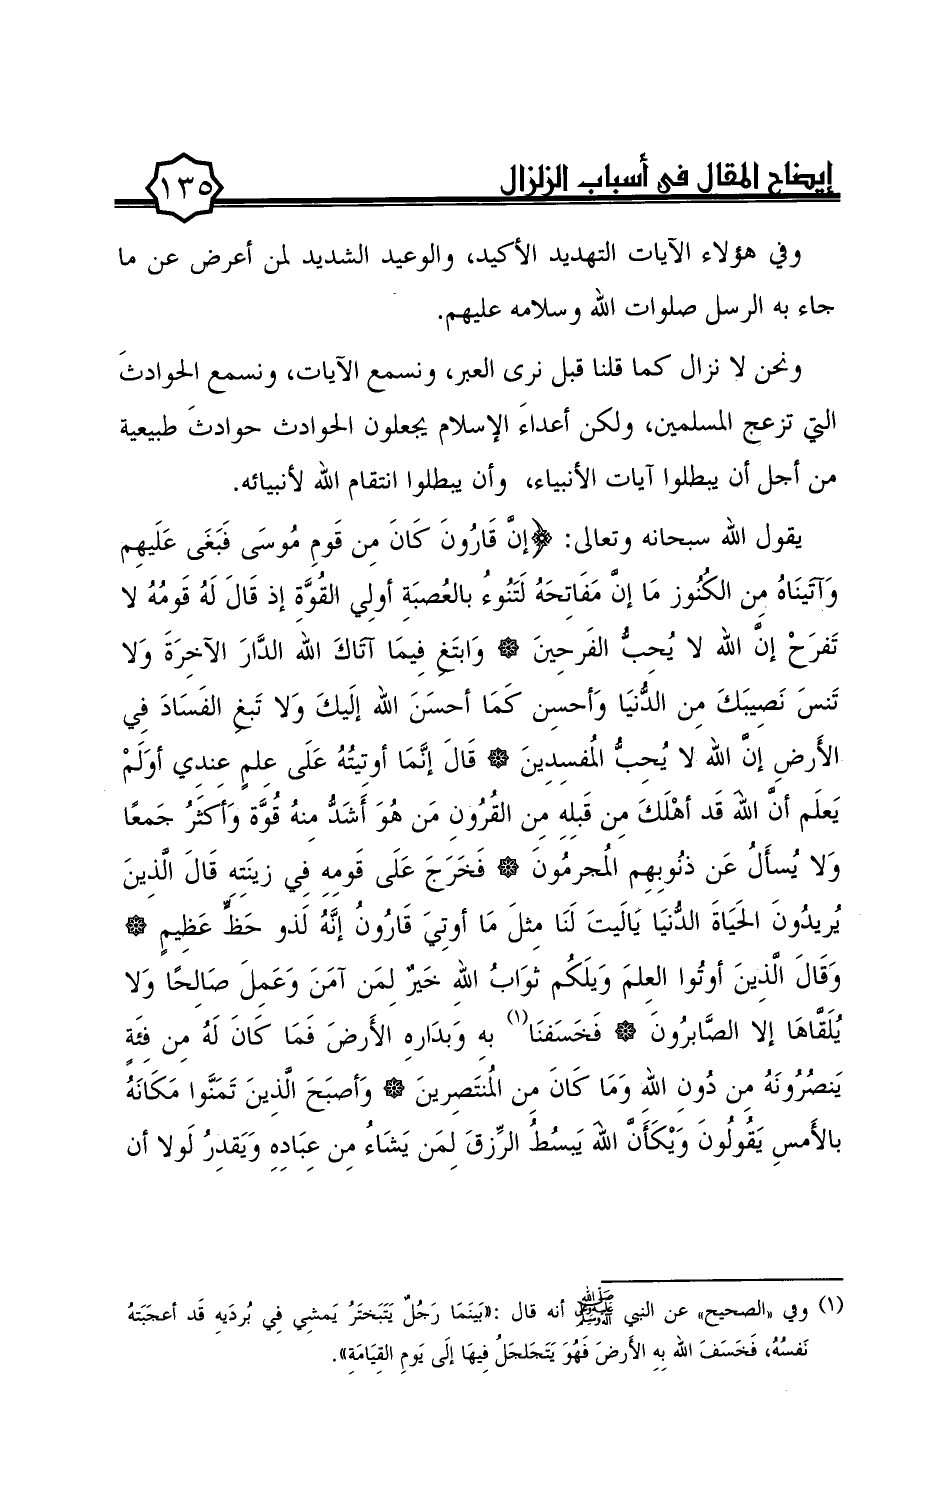 إيضاح المقال في أسباب الزلزال ١٣٥
وفي هؤلاء الآيات التهديد الأكيد، والوعيد الشديد لمن أعرض عن ما
جاء به الرسل صلوات الله وسلامه عليهم.
ونحن لا نزال كما قلنا قبل نرى العبر، ونسمع الآيات، ونسمع الحوادثَ
التي تزعج المسلمين، ولكن أعداءَ الإسلام يجعلون الحوادث حوادثَ طبيعية
من أجل أن يبطلوا آيات الأنبياء، وأن يبطلوا انتقام الله لأنبيائه.
يقول الله سبحانه وتعالى: ﴿إنَّ قَارُونَ كَانَ مِن قَومِ مُوسَى فَبَغَى عَلَيهِم
وَآتَينَاهُ مِن الكُنُوزِ مَا إنَّ مَفَاتِحَهُ لَتَنُوءُ بِالعُصبَةِ أولِي القُوَّةِ إذ قَالَ لَهُ قَومُهُ لا
تَفرَحْ إنَّ الله لا يُحِبُّ الفَرِحِينَ ۞ وَابتَغِ فِيمَا آتَاكَ الله الدَّارَ الآخِرَةَ وَلا
تَنسَ نَصِيبَكَ مِن الدُّنيَا وَأحسِن كَمَا أحسَنَ الله إلَيكَ وَلا تَبغِ الفَسَادَ فِي
الأَرضِ إنَّ الله لا يُحِبُّ المُفسِدِينَ ۞ قَالَ إنَّمَا أوتِيتُهُ عَلَى عِلمٍ عِندِي أوَلَمْ
يَعلَم أنَّ اللهَ قَد أهْلَكَ مِن قَبلِهِ مِن القُرُونِ مَن هُوَ أَشَدُّ مِنهُ قُوَّة وَأكثَرُ جَمعًا
وَلا يُسأَلُ عَن ذنُوبِهِم المُجرِمُونَ ۞ فَخَرَجَ عَلَى قَومِهِ فِي زِينَتِهِ قَالَ الَّذِينَ
يُرِيدُونَ الحَيَاةَ الدُّنيَا يَالَيتَ لَنَا مِثلَ مَا أوتِيَ قَارُونُ إنَّهُ لَذو حَظٍّ عَظِيمٍ ۞
وَقَالَ الَّذِينَ أوتُوا العِلمَ وَيلَكُم ثوَابُ اللهِ خَيرٌ لِمَن آمَنَ وَعَمِلَ صَالِحًا وَلا
يُلَقَّاهَا إلا الصَّابِرُونَ ۞ فَخَسَفنَا(١) بِهِ وَبِدَارِهِ الأَرضَ فَمَا كَانَ لَهُ مِن فِئَةٍ
يَنصُرُونَهُ مِن دُونِ اللهِ وَمَا كَانَ مِن المُنتَصِرِينَ ۞ وَأصبَحَ الَّذِينَ تَمَنَّوا مَكَانَهُ
بِالأَمسِ يَقُولُونَ وَيْكَأَنَّ اللهَ يَبسُطُ الرِّزقَ لِمَن يَشَاءُ مِن عِبَادِهِ وَيَقدِرُ لَولا أن
(١) وفي «الصحيح» عن النبي ﷺ أنه قال :«بَينَمَا رَجُلٌ يَتَبَختَرُ يَمشِي فِي بُردَيهِ قَد أعجَبَتهُ
نَفسُهُ، فَخَسَفَ الله بِهِ الأرضَ فَهُوَ يَتَجَلجَلُ فِيهَا إلَى يَومِ القِيَامَةِ».